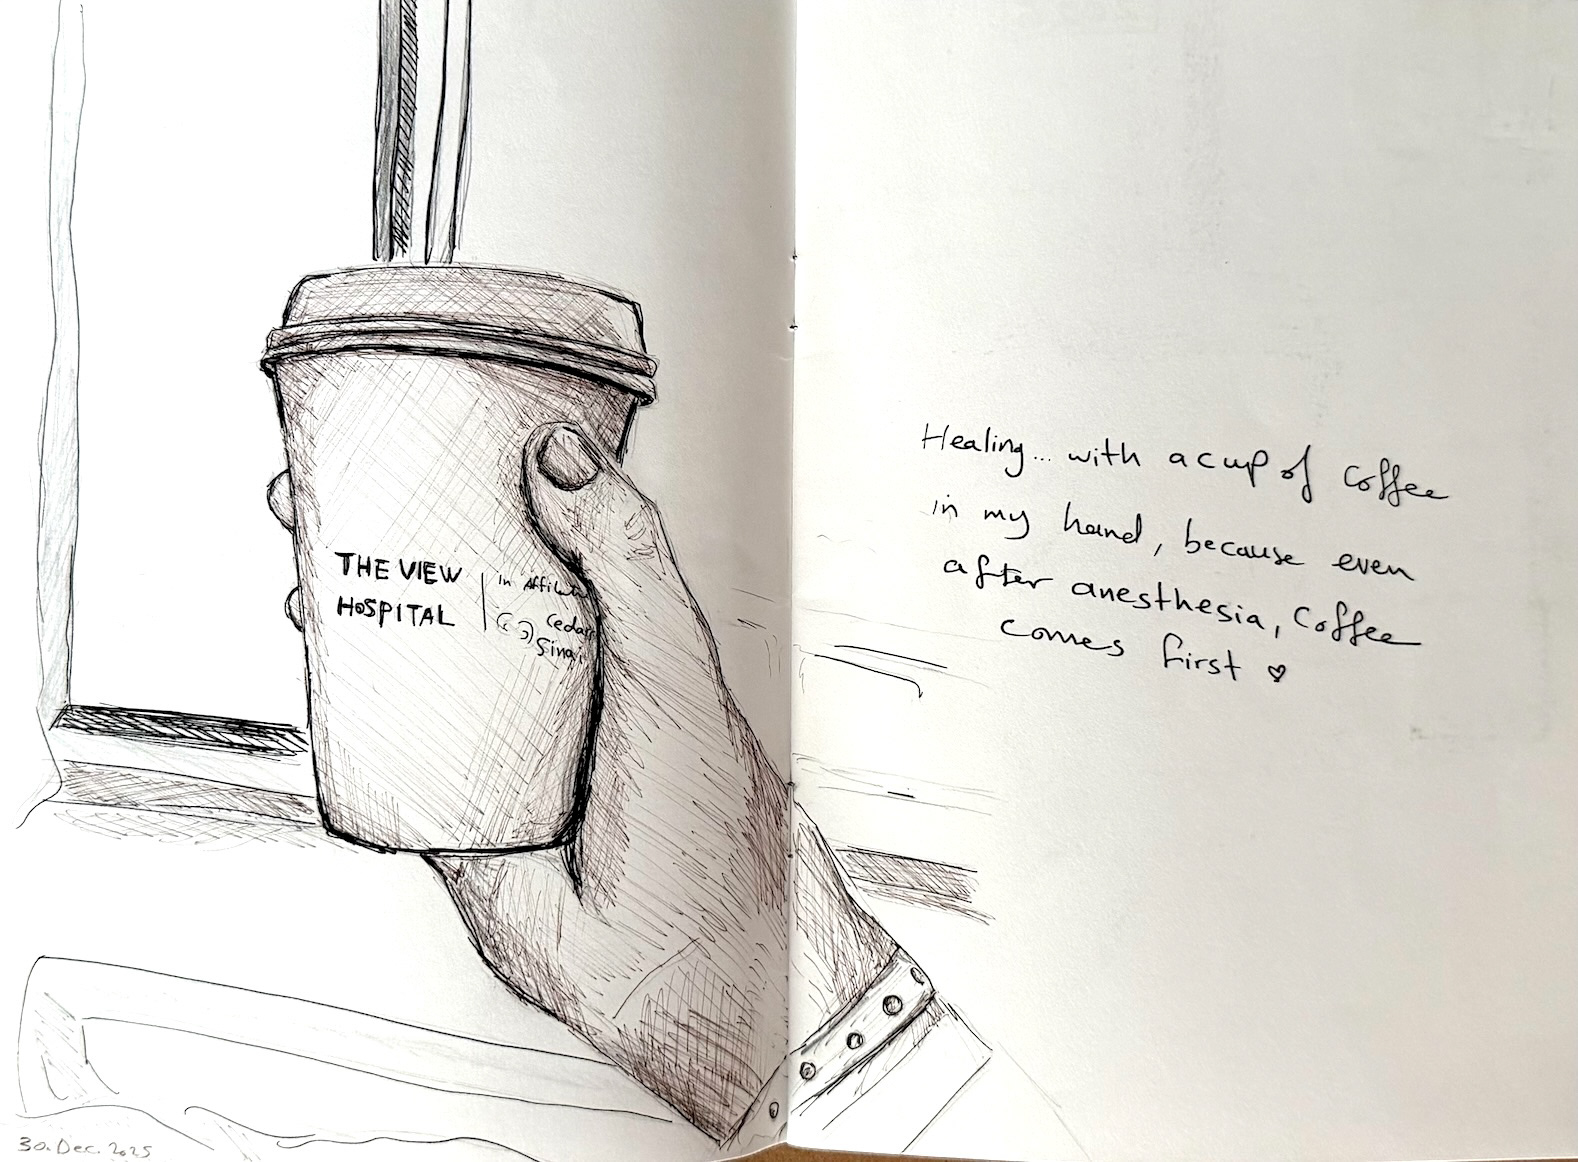 THE VIEW
HOSPITAL
in Affiliat
Cedars
Sinai
Healing... with a cup of Coffee
in my hand, because even
after anesthesia, Coffee
comes first ♡
30.Dec.2025